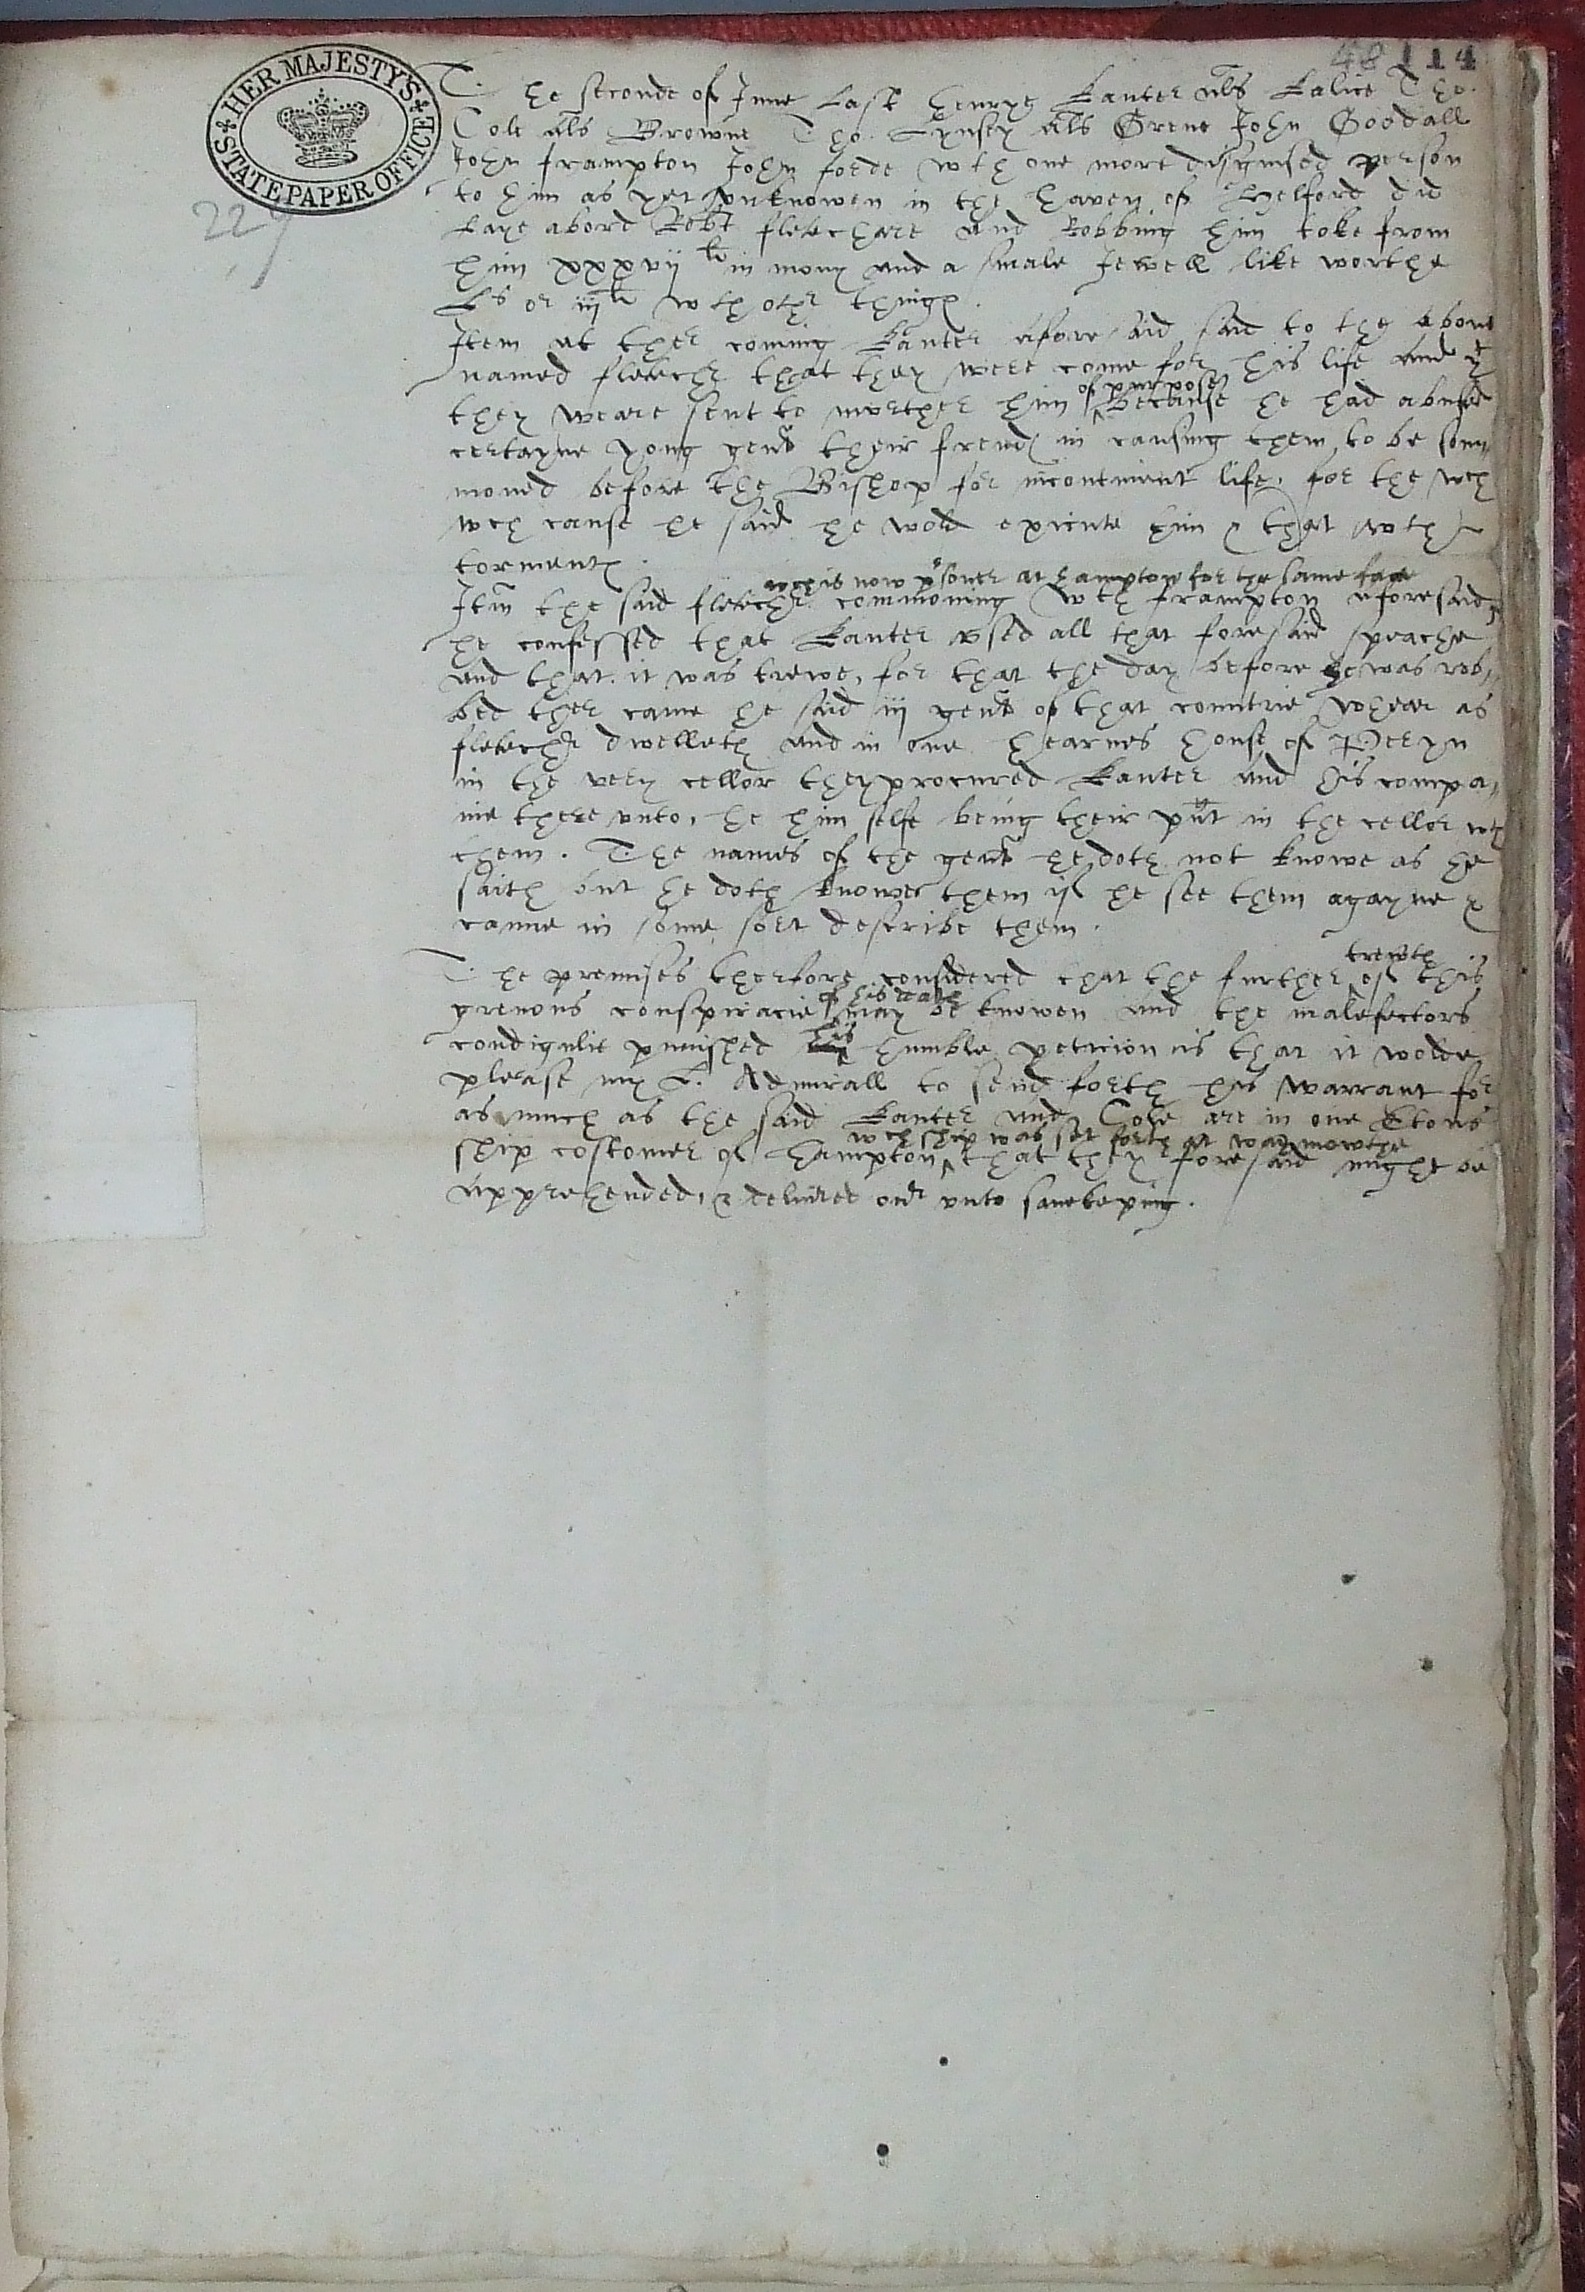 48 114
HER MAJESTY'S STATE PAPER OFFICE
229
The seconde of June Last henrye Kanter als Kalice Tho.
Cole als Browne Tho. Lynsey als Grene John Goodall
John frampton John forde wth one more disguised person
to him as yet vnknowen in the haven of Helford did
Laye abord Robt fletchare and Robbing him toke from
him xxxvij li in mony and a smale Jewell like worthe
Ls or iij li wth other things.
Item at ther coming Kanter afore said said to the above
named fletcher that they were come for his life and yt
of purpose
they weare sent to murther him because he had abused
certayne yong gent their frends in causing them to be som
moned before the Bishop for incontinent life, for the wch
wch cause he said he wold exicute him & that wth
torments.
wch is now prsoner at hampton for the same fact
Itm the said fletcher commoning wth frampton aforesaid,
he confessed that Kanter vsed all that foresaid speache
and that it was trewe, for that the day before he was rob,,
bed ther came he said iij gent of that countrie whear as
fletcher dwelleth and in one hearnes house of Peryn
in the very cellor they procured Kanter and his compa,,
nie there vnto, he him selfe being their pnt in the cellor wth
them. The names of the gent he doth not knowe as he
saith but he doth knowe them if he see them agayne &
canne in some sort describe them.
trewth
The premises therfore considered that the further of this
of his death
grevous conspiracie may be knowen and the malefectors
his
condignlie punished humble peticion is that it wolde
please my L. Admirall to send forth his warrant for
as much as the said Kanter and Cole are in one
wch ship was set forth at waymowthe
ship costomer of hampton that they foresaid might be
apprehended, & delivered ovr vnto savekeping.